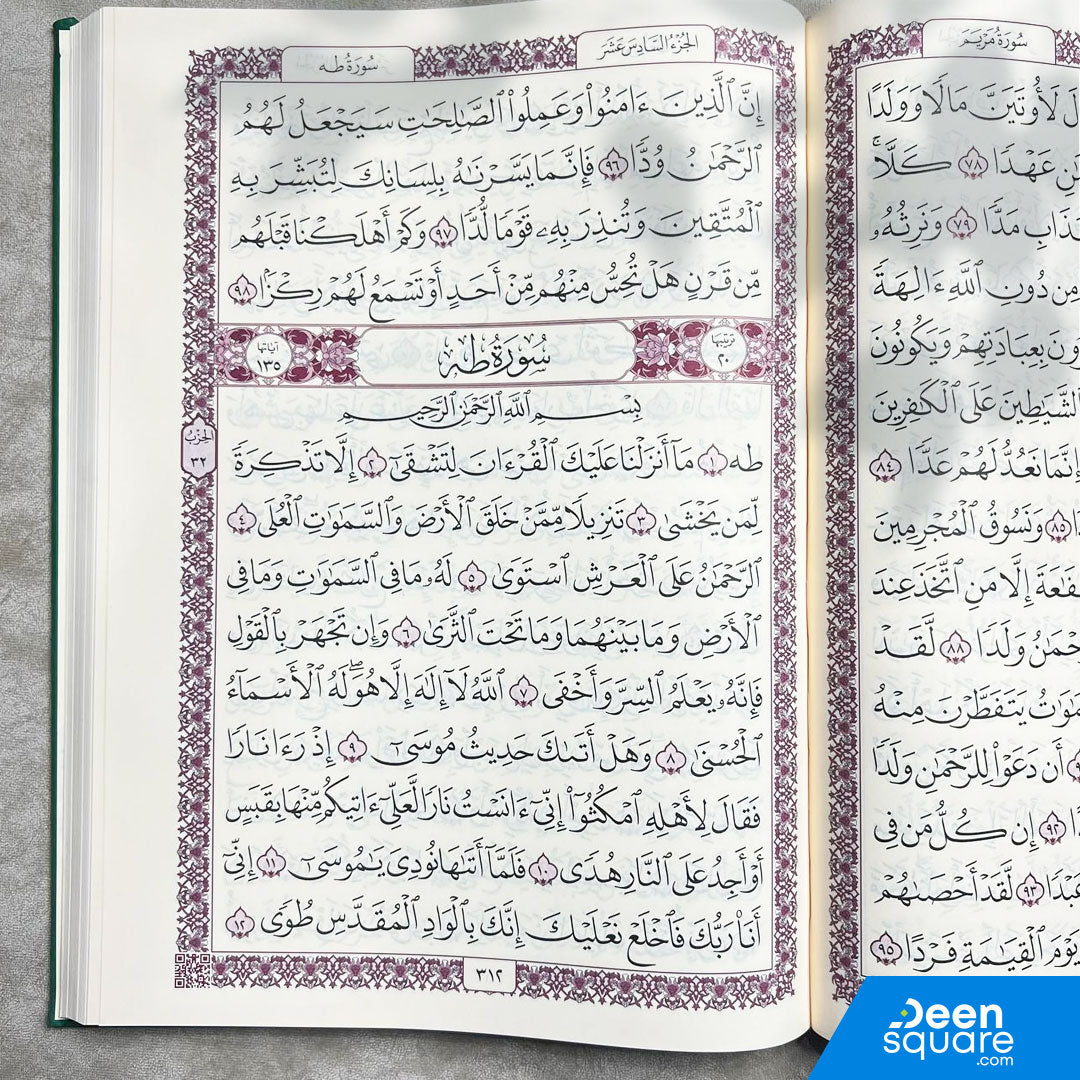 سُورَةُ مَرْيَمَ
لَأُوتَيَنَّ مَالًا وَوَلَدًا
عَهْدًا ٧٨ كَلَّا ۚ
مَدًّا ٧٩ وَنَرِثُهُۥ
مِن دُونِ ٱللَّهِ ءَالِهَةً
بِعِبَادَتِهِمْ وَيَكُونُونَ
ٱلشَّيَٰطِينَ عَلَى ٱلْكَٰفِرِينَ
إِنَّمَا نَعُدُّ لَهُمْ عَدًّا ٨٤
٨٥ وَنَسُوقُ ٱلْمُجْرِمِينَ
إِلَّا مَنِ ٱتَّخَذَ عِندَ
وَلَدًا ٨٨ لَّقَدْ
يَتَفَطَّرْنَ مِنْهُ
أَن دَعَوْا۟ لِلرَّحْمَٰنِ وَلَدًا
٩٢ إِن كُلُّ مَن فِى
٩٣ لَّقَدْ أَحْصَىٰهُمْ
يَوْمَ ٱلْقِيَٰمَةِ فَرْدًا ٩٥
الجُزْءُ السَّادِسَ عَشَرَ
سُورَةُ طه
إِنَّ ٱلَّذِينَ ءَامَنُوا۟ وَعَمِلُوا۟ ٱلصَّٰلِحَٰتِ سَيَجْعَلُ لَهُمُ
ٱلرَّحْمَٰنُ وُدًّا ٩٦ فَإِنَّمَا يَسَّرْنَٰهُ بِلِسَانِكَ لِتُبَشِّرَ بِهِ
ٱلْمُتَّقِينَ وَتُنذِرَ بِهِۦ قَوْمًا لُّدًّا ٩٧ وَكَمْ أَهْلَكْنَا قَبْلَهُم
مِّن قَرْنٍ هَلْ تُحِسُّ مِنْهُم مِّنْ أَحَدٍ أَوْ تَسْمَعُ لَهُمْ رِكْزًۢا ٩٨
ترتيبها
٢٠
سُورَةُ طه
آياتها
١٣٥
بِسْمِ ٱللَّهِ ٱلرَّحْمَٰنِ ٱلرَّحِيمِ
طه ١ مَآ أَنزَلْنَا عَلَيْكَ ٱلْقُرْءَانَ لِتَشْقَىٰٓ ٢ إِلَّا تَذْكِرَةً
لِّمَن يَخْشَىٰ ٣ تَنزِيلًا مِّمَّنْ خَلَقَ ٱلْأَرْضَ وَٱلسَّمَٰوَٰتِ ٱلْعُلَى ٤
ٱلرَّحْمَٰنُ عَلَى ٱلْعَرْشِ ٱسْتَوَىٰ ٥ لَهُۥ مَا فِى ٱلسَّمَٰوَٰتِ وَمَا فِى
ٱلْأَرْضِ وَمَا بَيْنَهُمَا وَمَا تَحْتَ ٱلثَّرَىٰ ٦ وَإِن تَجْهَرْ بِٱلْقَوْلِ
فَإِنَّهُۥ يَعْلَمُ ٱلسِّرَّ وَأَخْفَى ٧ ٱللَّهُ لَآ إِلَٰهَ إِلَّا هُوَ ۖ لَهُ ٱلْأَسْمَآءُ
ٱلْحُسْنَىٰ ٨ وَهَلْ أَتَىٰكَ حَدِيثُ مُوسَىٰٓ ٩ إِذْ رَءَا نَارًا
فَقَالَ لِأَهْلِهِ ٱمْكُثُوٓا۟ إِنِّىٓ ءَانَسْتُ نَارًا لَّعَلِّىٓ ءَاتِيكُم مِّنْهَا بِقَبَسٍ
أَوْ أَجِدُ عَلَى ٱلنَّارِ هُدًى ١٠ فَلَمَّآ أَتَىٰهَا نُودِىَ يَٰمُوسَىٰٓ ١١ إِنِّىٓ
أَنَا۠ رَبُّكَ فَٱخْلَعْ نَعْلَيْكَ إِنَّكَ بِٱلْوَادِ ٱلْمُقَدَّسِ طُوًى ١٢
الحزب
٣٢
٣١٢
Deen
square
.com